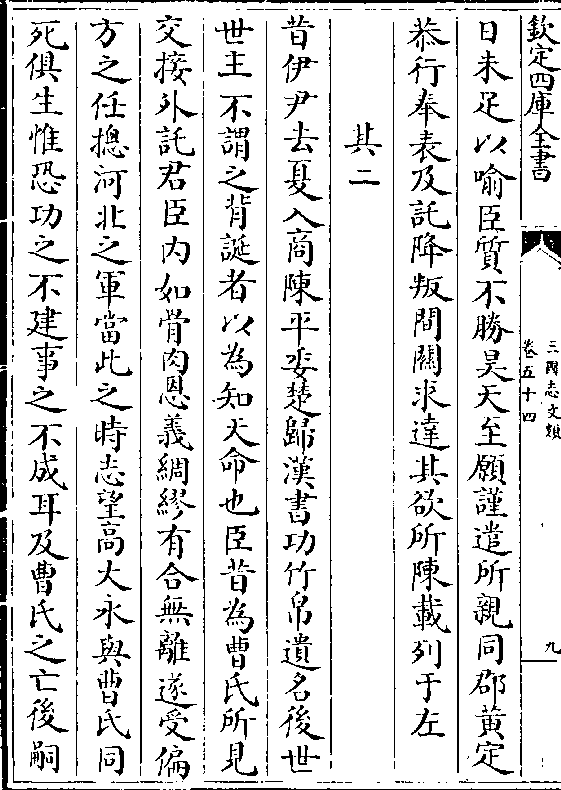 欽定四庫全書
三國志文類
卷五十四
九
日未足以喻臣質不勝昊天至願謹遣所親同郡黃定
恭行奉表及託降叛間關求達其欲所陳載列于左
其二
昔伊尹去夏入商陳平委楚歸漢書功竹帛遺名後世
世主不謂之背誕者以為知天命也臣昔為曹氏所見
交接外託君臣内如骨肉恩義綢繆有合無離遂受偏
方之任揔河北之軍當此之時志望高大永與曹氏同
死俱生惟恐功之不建事之不成耳及曹氏之亡後嗣